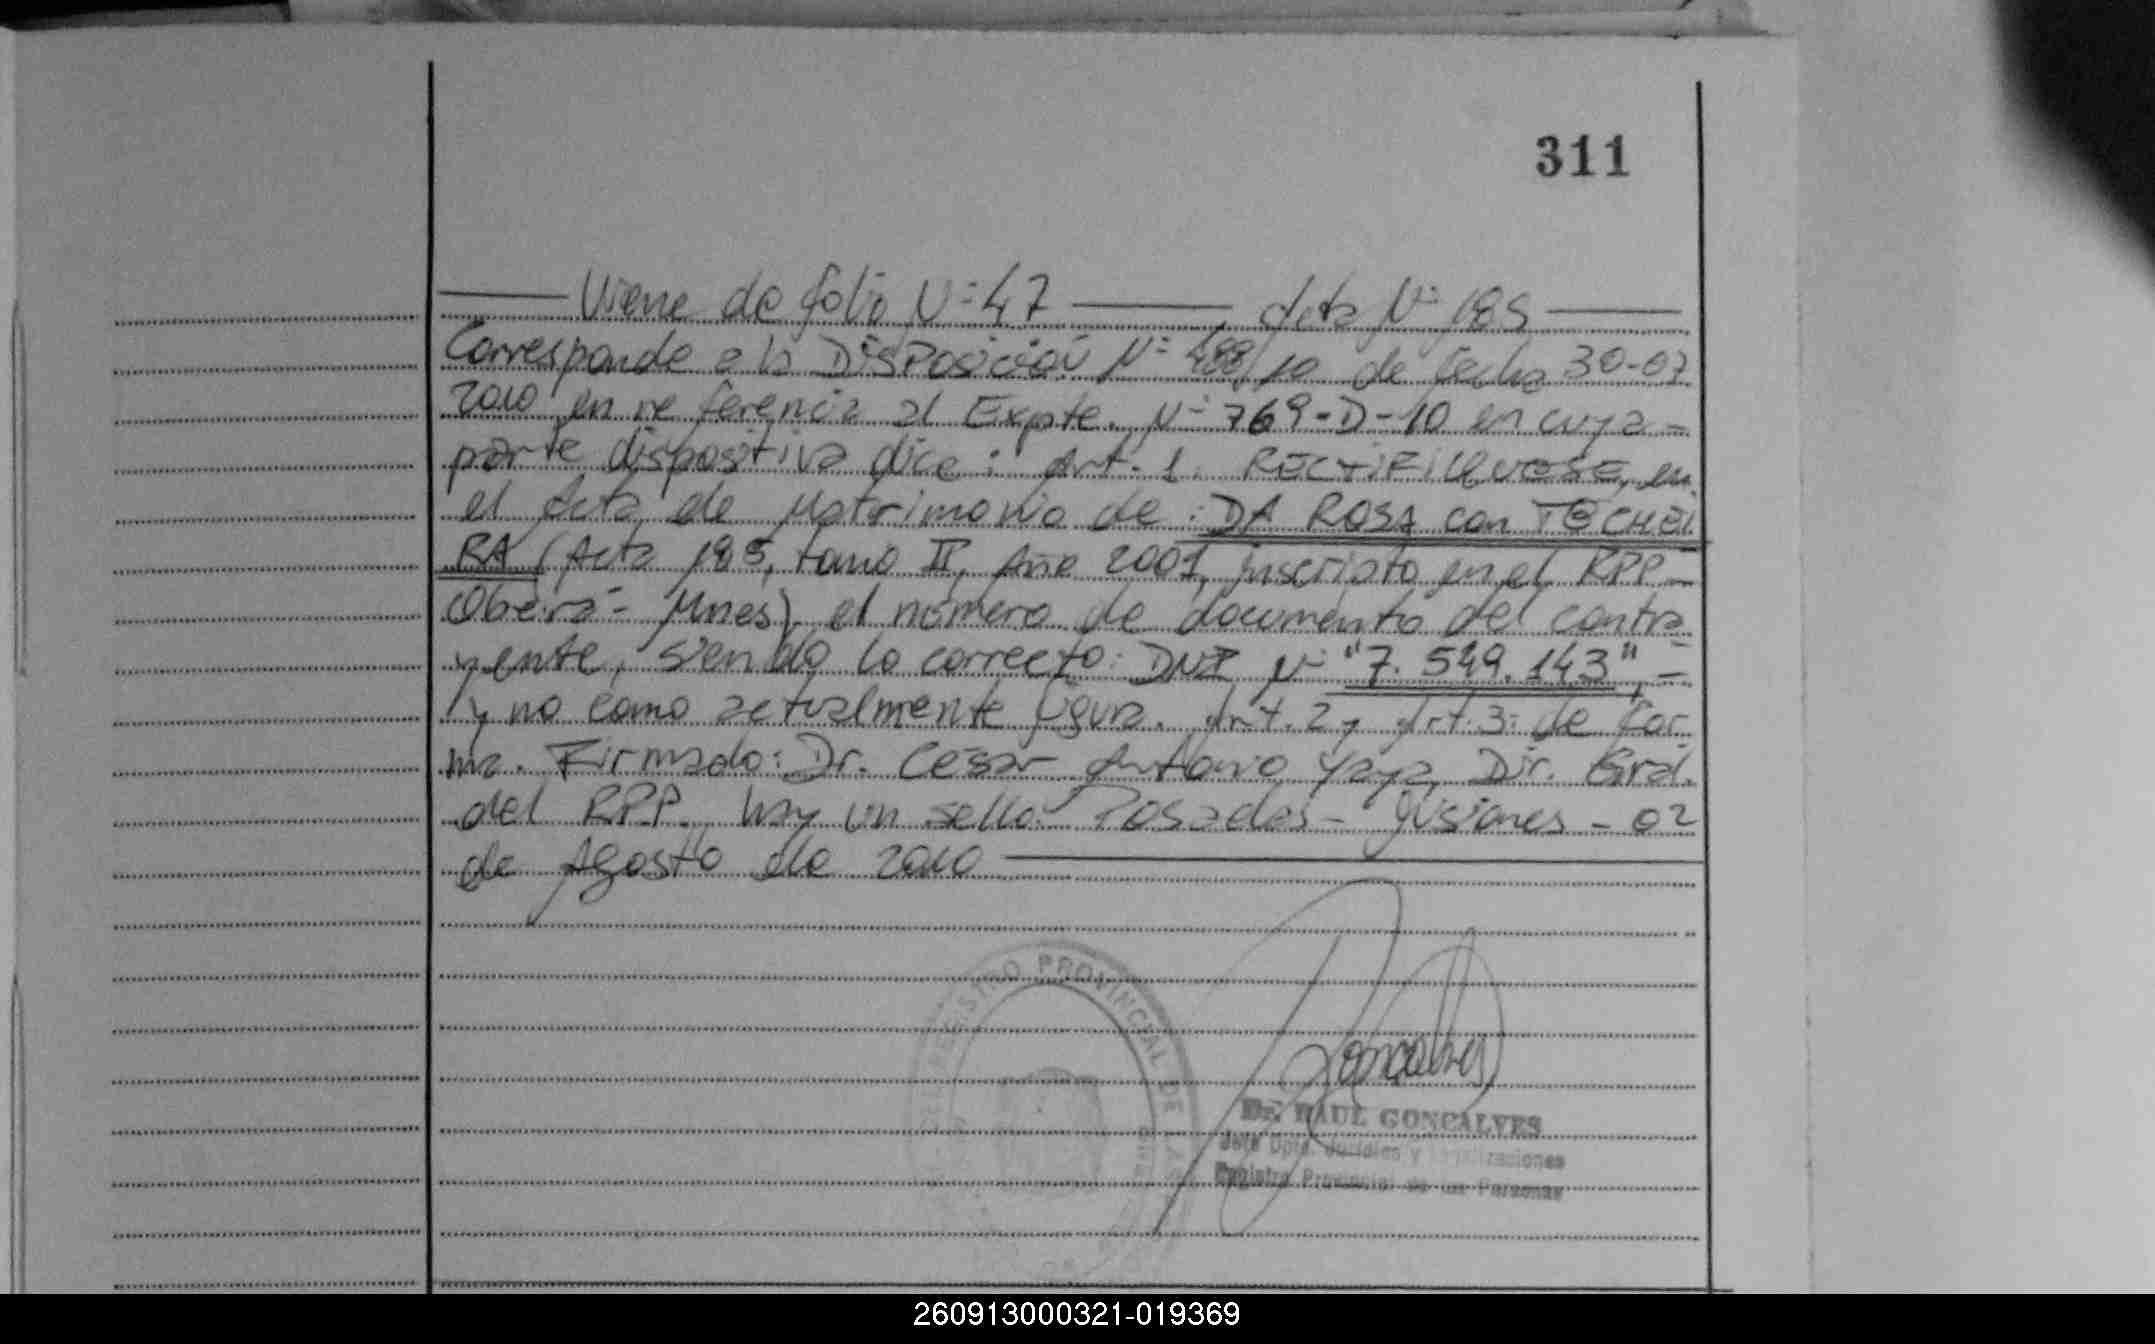 311
Viene de folio N° 47 Acta N° 185
Corresponde a la DISPOSICIÓN N° 488/10 de fecha 30-07
2010 en referencia al Expte. N° 769-D-10 en cuya -
parte dispositiva dice: Art. 1. RECTIFIQUESE, en
el Acta de Matrimonio de: DA ROSA con TECHEI
RA (Acta 185, tomo II, Año 2001, inscripto en el RPP -
Oberá - Mnes) el número de documento del contra
yente, siendo lo correcto: DNI N° "7.549.143", -
y no como actualmente figura. Art. 2 y Art. 3: de for
ma. Firmado: Dr. Cesar Antonio Yaya Dir. Gral.
del RPP. hay un sello: Posadas - Misiones - 02
de Agosto de 2010
REGISTRO PROVINCIAL DE LAS
Goncalves
Dr. RAUL GONCALVES
Jefe Dpto. Judiciales y Legalizaciones
Registro Provincial de las Personas
260913000321-019369